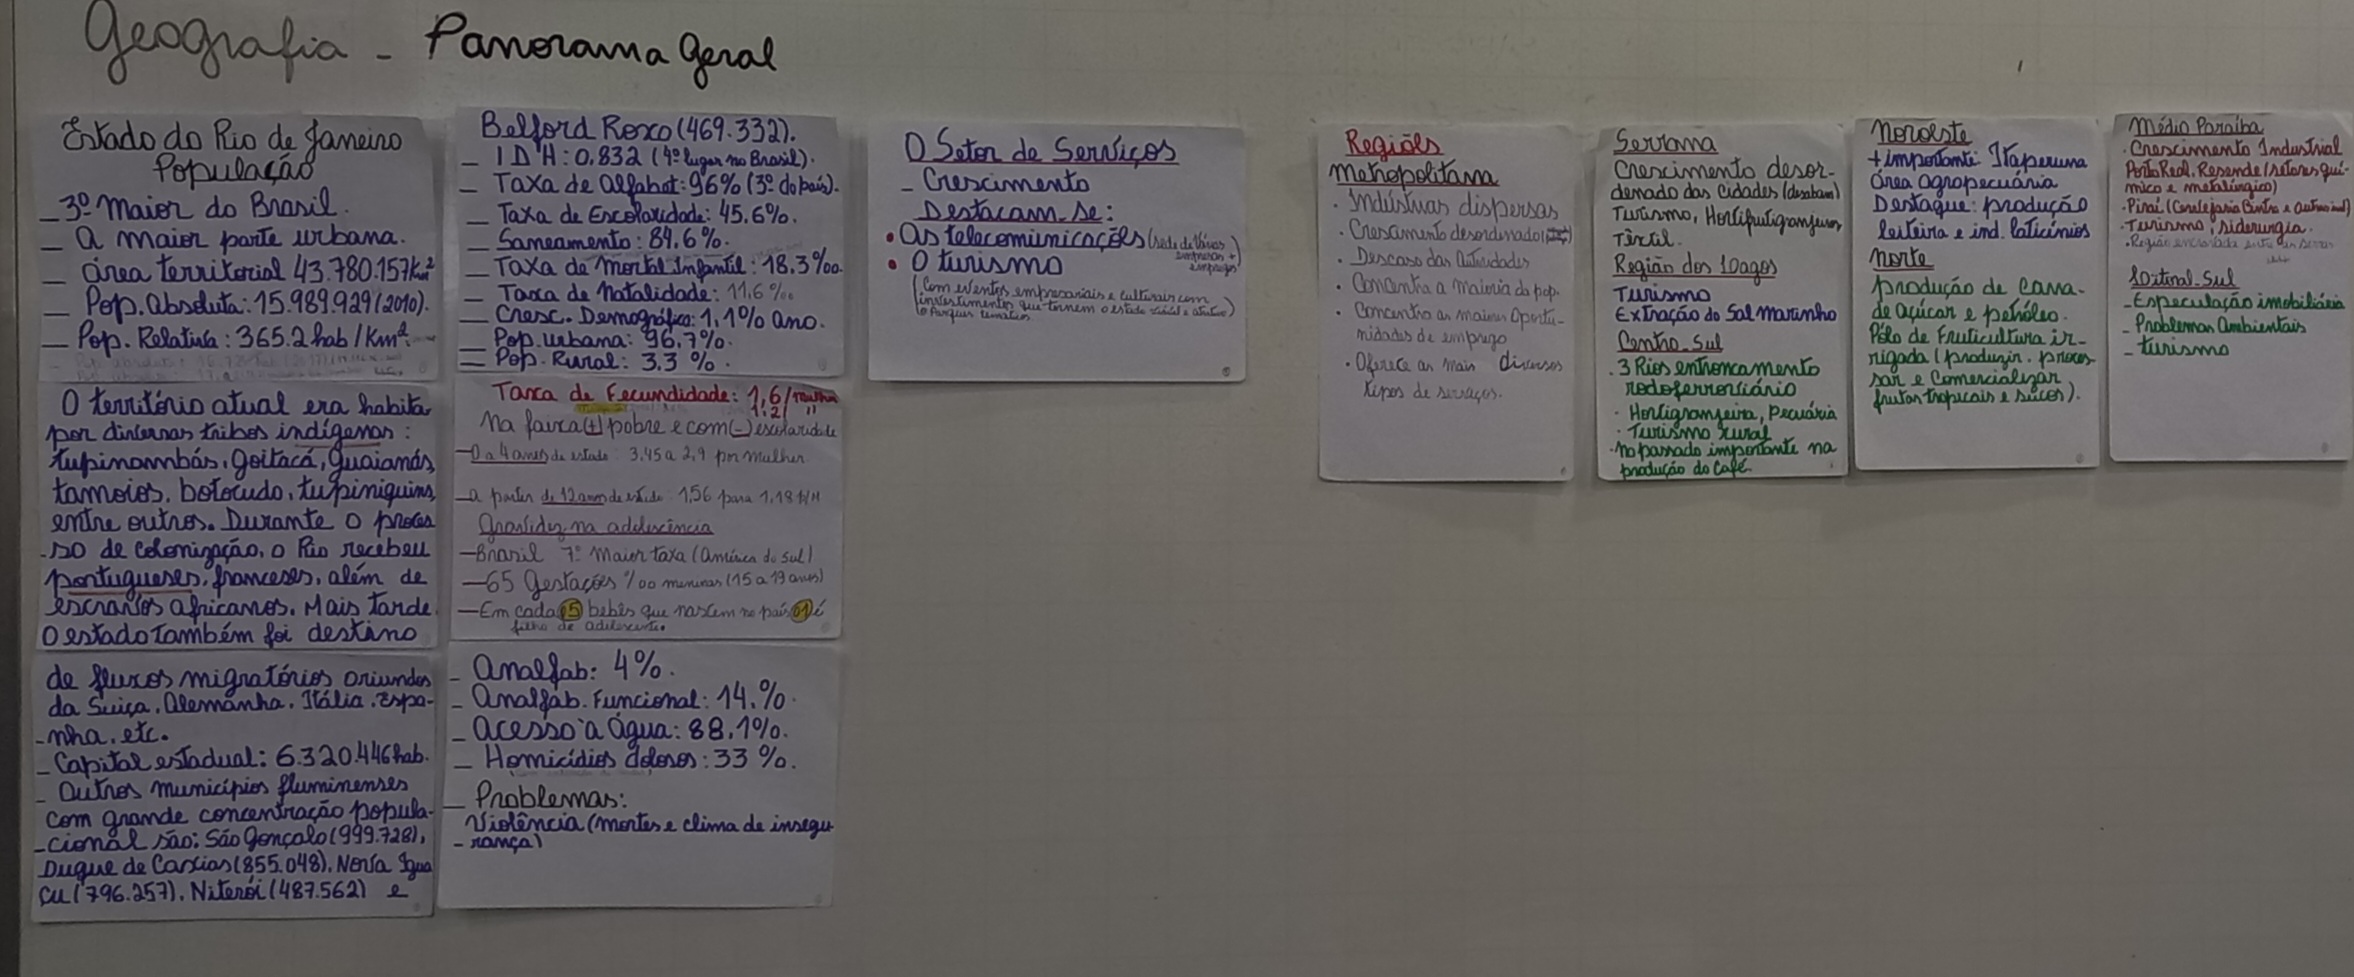 Geografia - Panorama Geral
Estado do Rio de Janeiro
População
- 3º Maior do Brasil.
- A maior parte urbana.
- área territorial 43.780.157km²
- Pop. Absoluta: 15.989.929 (2010).
- Pop. Relativa: 365.2 hab/Km².
O território atual era habita
por diversas tribos indíganas:
tupinambás, goitacá, guaianás,
tamoios, botocudo, tupiniquins,
entre outros. Durante o proces
-so de colonização, o Rio recebeu
portugueses, franceses, além de
escravos africanos. Mais tarde
o estado também foi destino
de fluxos migratórios oriundos
da Suiça, Alemanha, Itália, Espa-
-nha, etc.
- Capital estadual: 6.320.446 hab.
- Outros municípios fluminenses
com grande concentração popula-
-cional são: São Gonçalo (999.728),
Duque de Caxias (855.048), Nova Igua
çu (796.257), Niterói (487.562) e
Belford Roxo (469.332).
- IDH: 0,832 (4º lugar no Brasil).
- Taxa de Alfabet: 96% (3º do país).
- Taxa de Escolaridade: 45,6%.
- Saneamento: 84,6%.
- Taxa de Mortal Infantil: 18,3‰.
- Taxa de Natalidade: 11,6‰
- Cresc. Demográfico: 1,1% ano.
- Pop. urbana: 96,7%.
- Pop. Rural: 3,3 %.
Taxa de Fecundidade: 1,6/mulher
1.2/ "
Na faixa (+) pobre e com (-) escolaridade
- 0 a 4 anos de estudo: 3,45 a 2,9 por mulher
- a partir de 12 anos de estudo: 1,56 para 1,18 f/M
Gravidez na adolescência
- Brasil 7º Maior taxa (América do Sul)
- 65 Gestações ‰ meninas (15 a 19 anos)
- Em cada 5 bebês que nascem no país 01 é
filho de adolescente.
- Analfab: 4%.
- Analfab. Funcional: 14.%.
- Acesso à Água: 88,1%.
- Homicídios dolosos: 33 %.
- Problemas:
Violência (mortes e clima de insegu
- rança)
O Setor de Serviços
- Crescimento
Destacam-se:
• As telecomunicações (sede de várias
empresas +
empregos)
• O turismo
(com eventos empresariais e culturais com
investimentos que tornem o estado
o Parques temáticos
Regiões
Metropolitana
. Indústrias dispersas
. Crescimento desordenado
. Descaso das Autoridades
. Concentra a maioria da pop.
. Concentra as maiores oportu-
nidades de emprego
. Oferece as mais diversos
tipos de serviços.
Serrana
Crescimento desor-
denado das cidades (desabam)
Turismo, Hortifrutigranjeiros
Têxtil.
Região dos Lagos
Turismo
Extração do Sal Marinho
Centro-Sul
. 3 Rios entroncamento
rodoferroviário
. Hortigranjeira, Pecuária
. Turismo rural
. No passado importante na
produção do Café.
Noroeste
+ importante: Itaperuna
Área agropecuária
Destaque: produção
leiteira e ind. laticínios
Norte
produção de cana-
de açúcar e petróleo.
Pólo de Fruticultura ir-
rigada (produzir, proces-
sar e comercializar
frutas tropicais e sucos).
Médio Paraíba
. Crescimento Industrial
Porto Real, Resende (setores quí-
mico e metalúrgico)
. Piraí (Cervejaria Cintra e
. Turismo, siderurgia.
. Região
Litoral Sul
- Especulação imobiliária
- Problemas Ambientais
- turismo